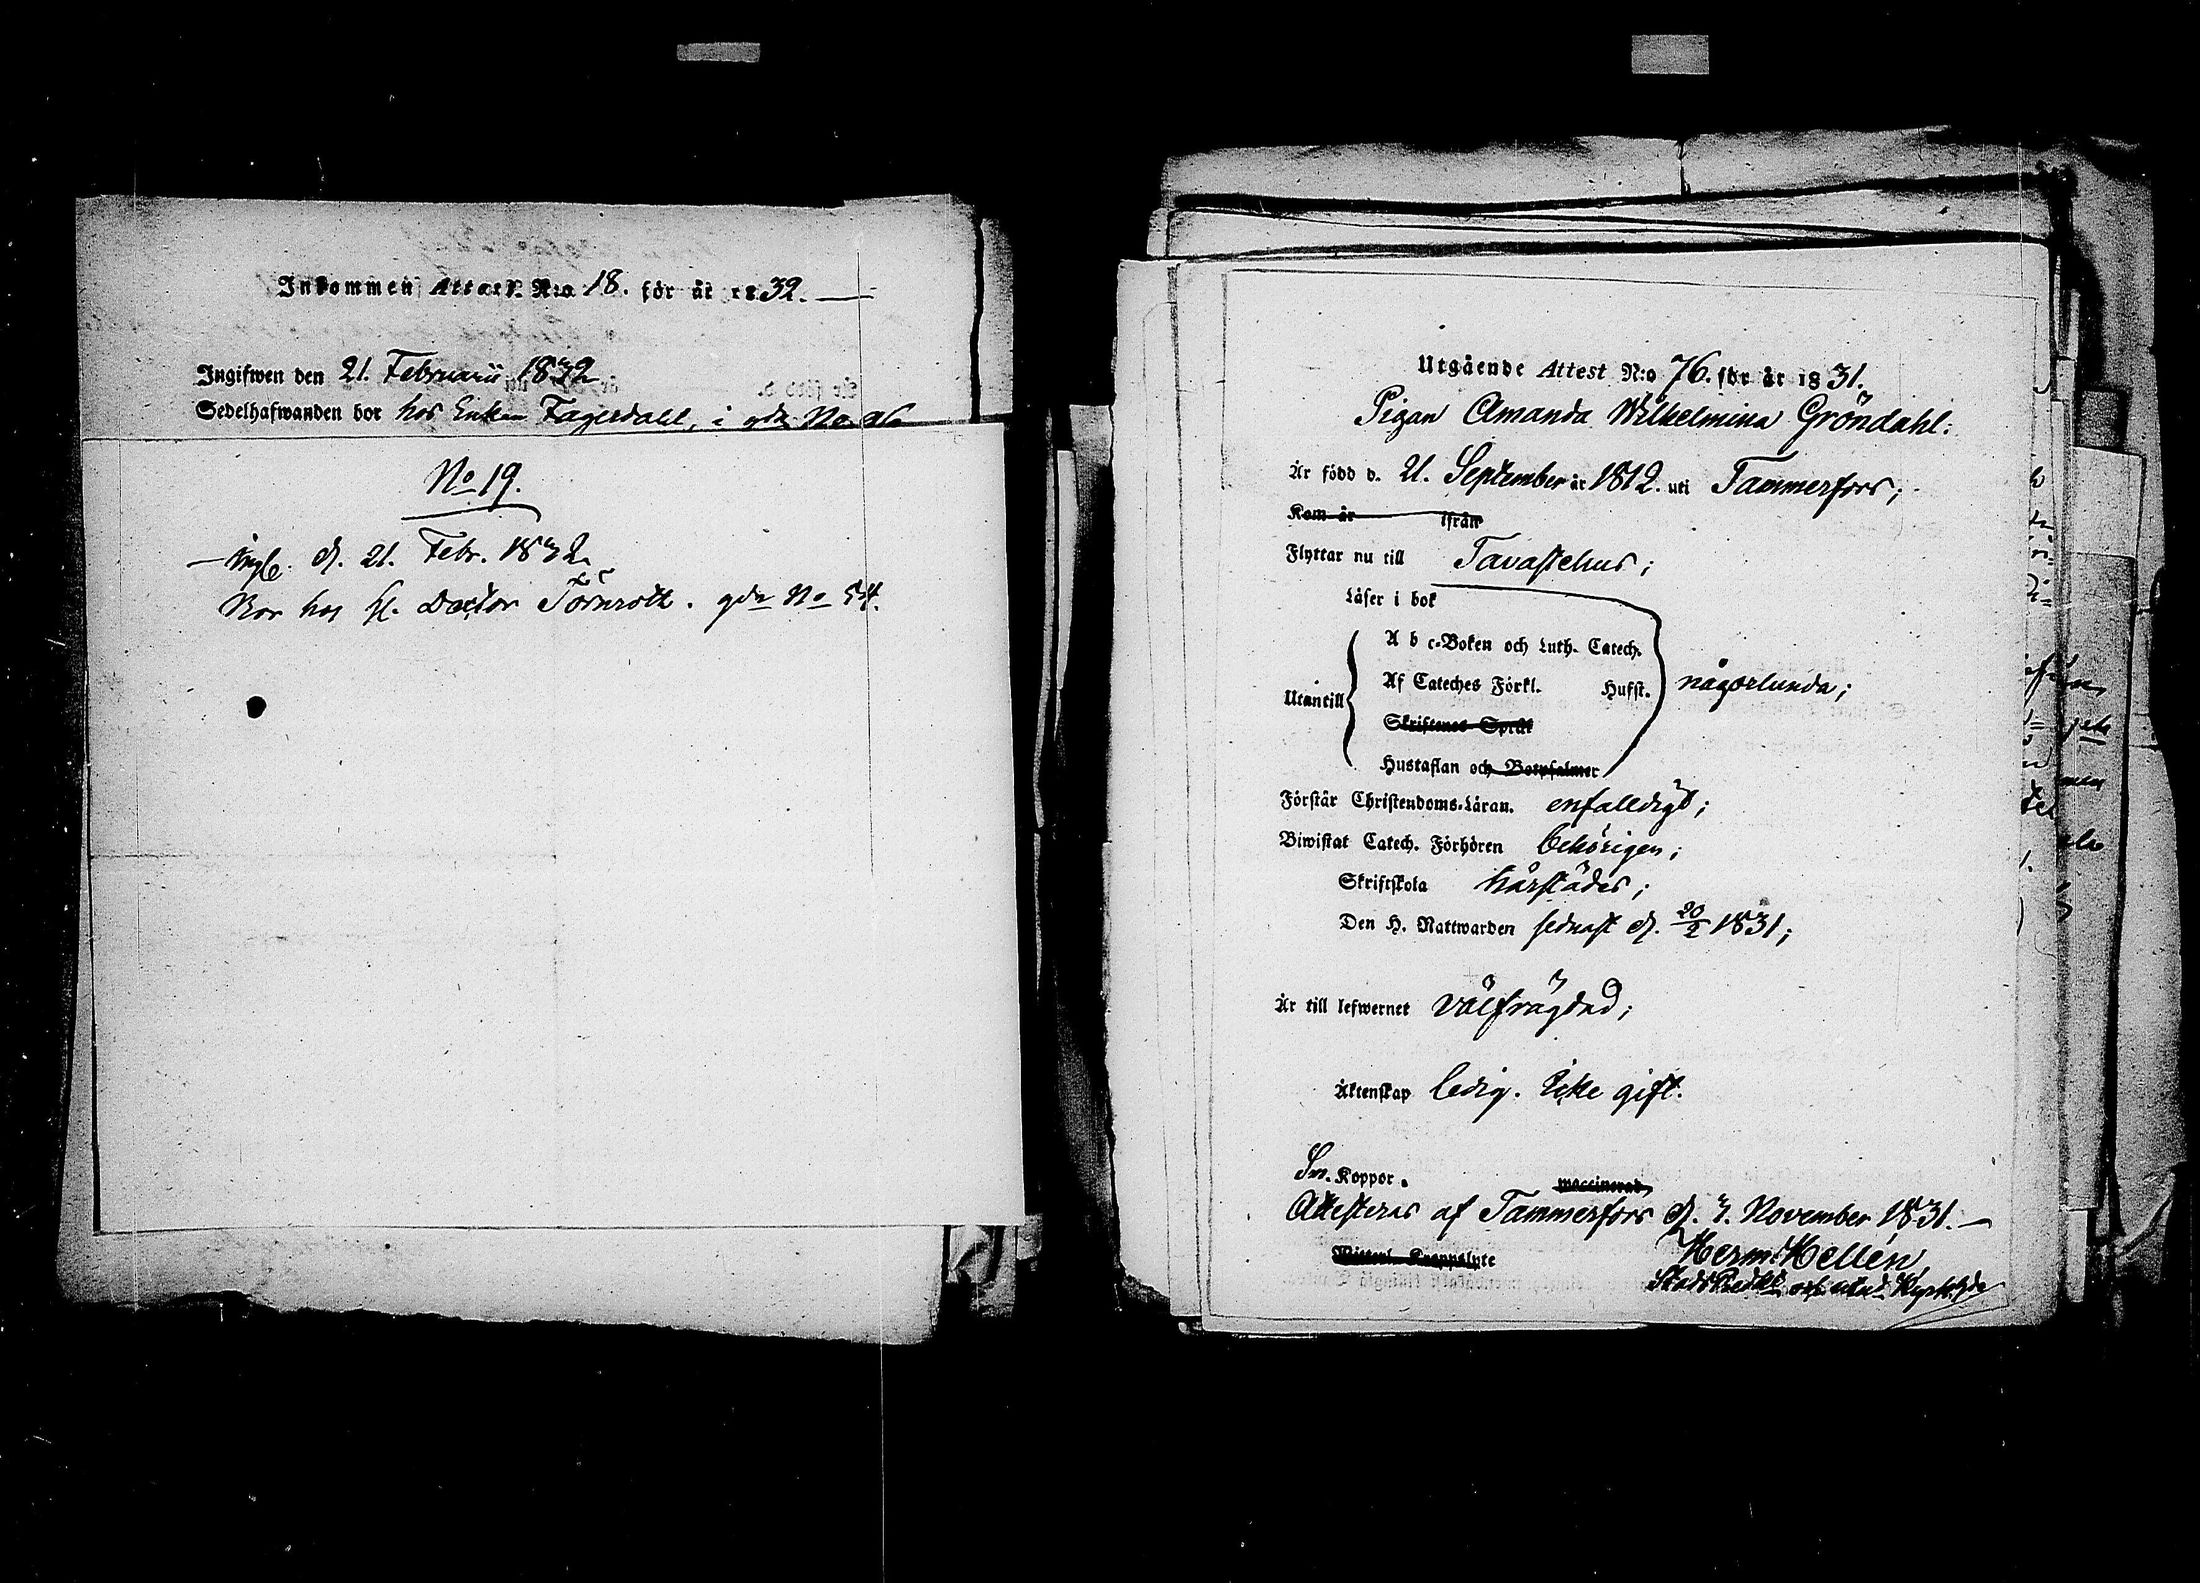 Inkommen Attest N:o 18. för år 1832.
Ingifwen den 21. Februarii 1832
Sedelhafwanden bor hos Enkan Fagerdahl, i gdn No 96
No 19.
Ingb. d. 21. Febr. 1832
Bor hos H. Doctor Törnroth. gdn No 54.
Utgående Attest N:o 76. för år 1831.
Pigan Amanda Wilhelmina Gröndahl:
Är född d. 21. September år 1812. uti Tammerfors;
Kom år ifrån
Flyttar nu till Tavastehus;
Läser i bok
A b c-Boken och Luth. Catech.
Utantill Af Cateches Förkl. Hufst. någorlunda;
Skriftenes Språk
Hustaflan och Botpsalmer
Förstår Christendoms-Läran. enfalldigt;
Biwistat Catech. Förhören behörigen;
Skriftskola härstädes;
Den H. Nattwarden sednast d. 20/2 1831;
Är till lefwernet välfrägdad;
Äktenskap ledig. Icke gift.
Sm. Koppor. waccinerad,
Attesteras af Tammerfors d. 3. November 1831.
Herm. Hellén,